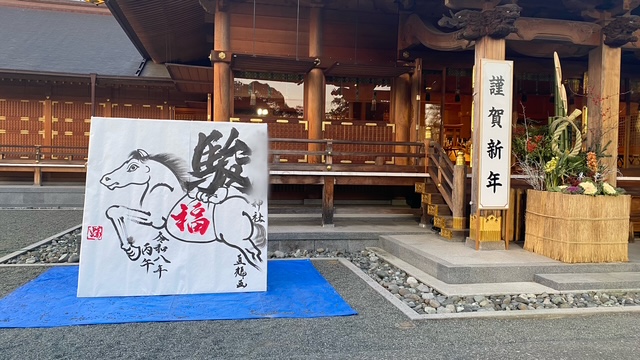 駿
福
令和八年
丙午
謹賀新年